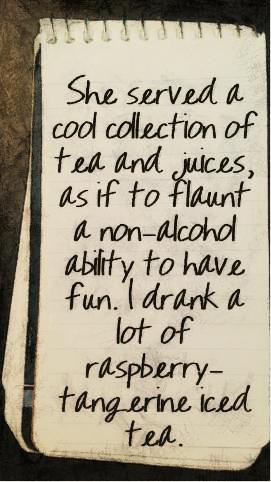 She served a
cool collection of
tea and juices,
as if to flaunt
a non-alcohol
ability to have
fun. I drank a
lot of
raspberry-
tangerine iced
tea.